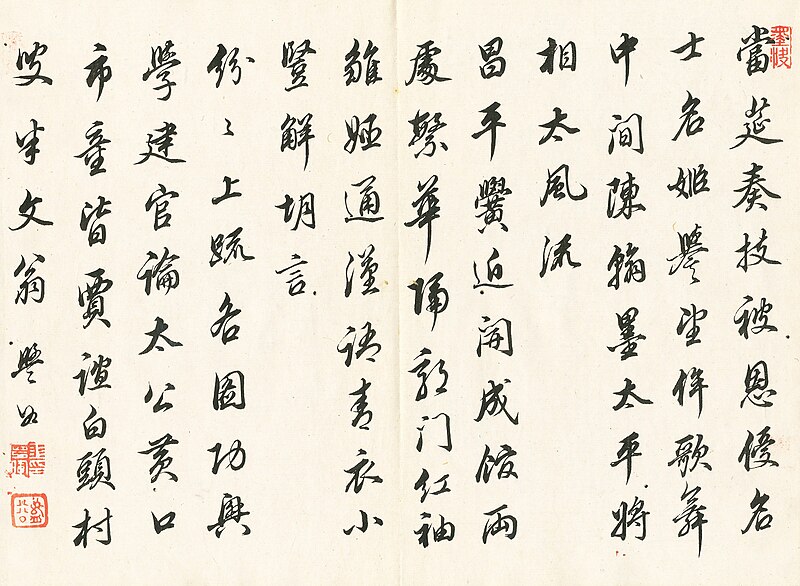 當莚奏技被恩優名
士名姬譽望侔歌舞
中間陳翰墨太平將
相太風流
昌平黌近開成館兩
處繁華隔郭門紅袖
雛姬通漢語青衣小
豎解胡言
紛々上疏各圖功興
學建官論太公黃口
市童皆賈誼白頭村
叟半文翁